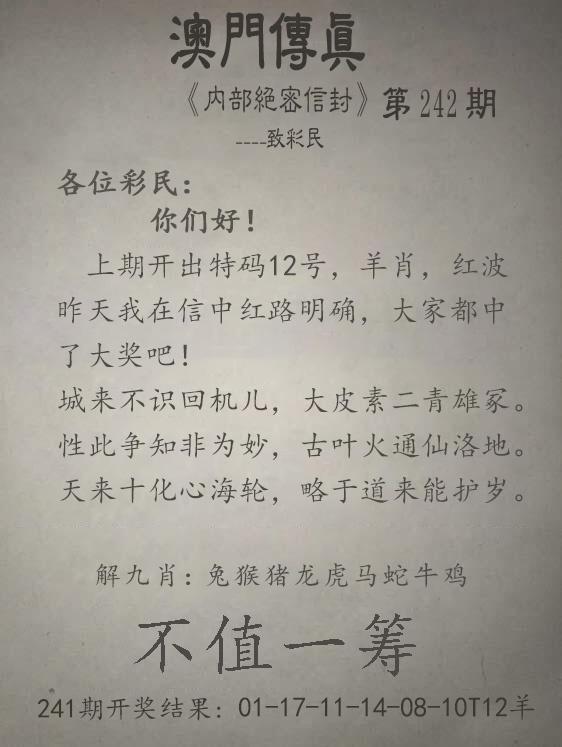 澳門傳眞
《内部絕密信封》第242期
----致彩民
各位彩民：
你们好！
上期开出特码12号，羊肖，红波
昨天我在信中红路明确，大家都中
了大奖吧！
城来不识回机儿，大皮素二青雄冢。
性此争知非为妙，古叶火通仙洛地。
天来十化心海轮，略于道来能护岁。
解九肖：兔猴猪龙虎马蛇牛鸡
不值一筹
241期开奖结果：01-17-11-14-08-10T12羊